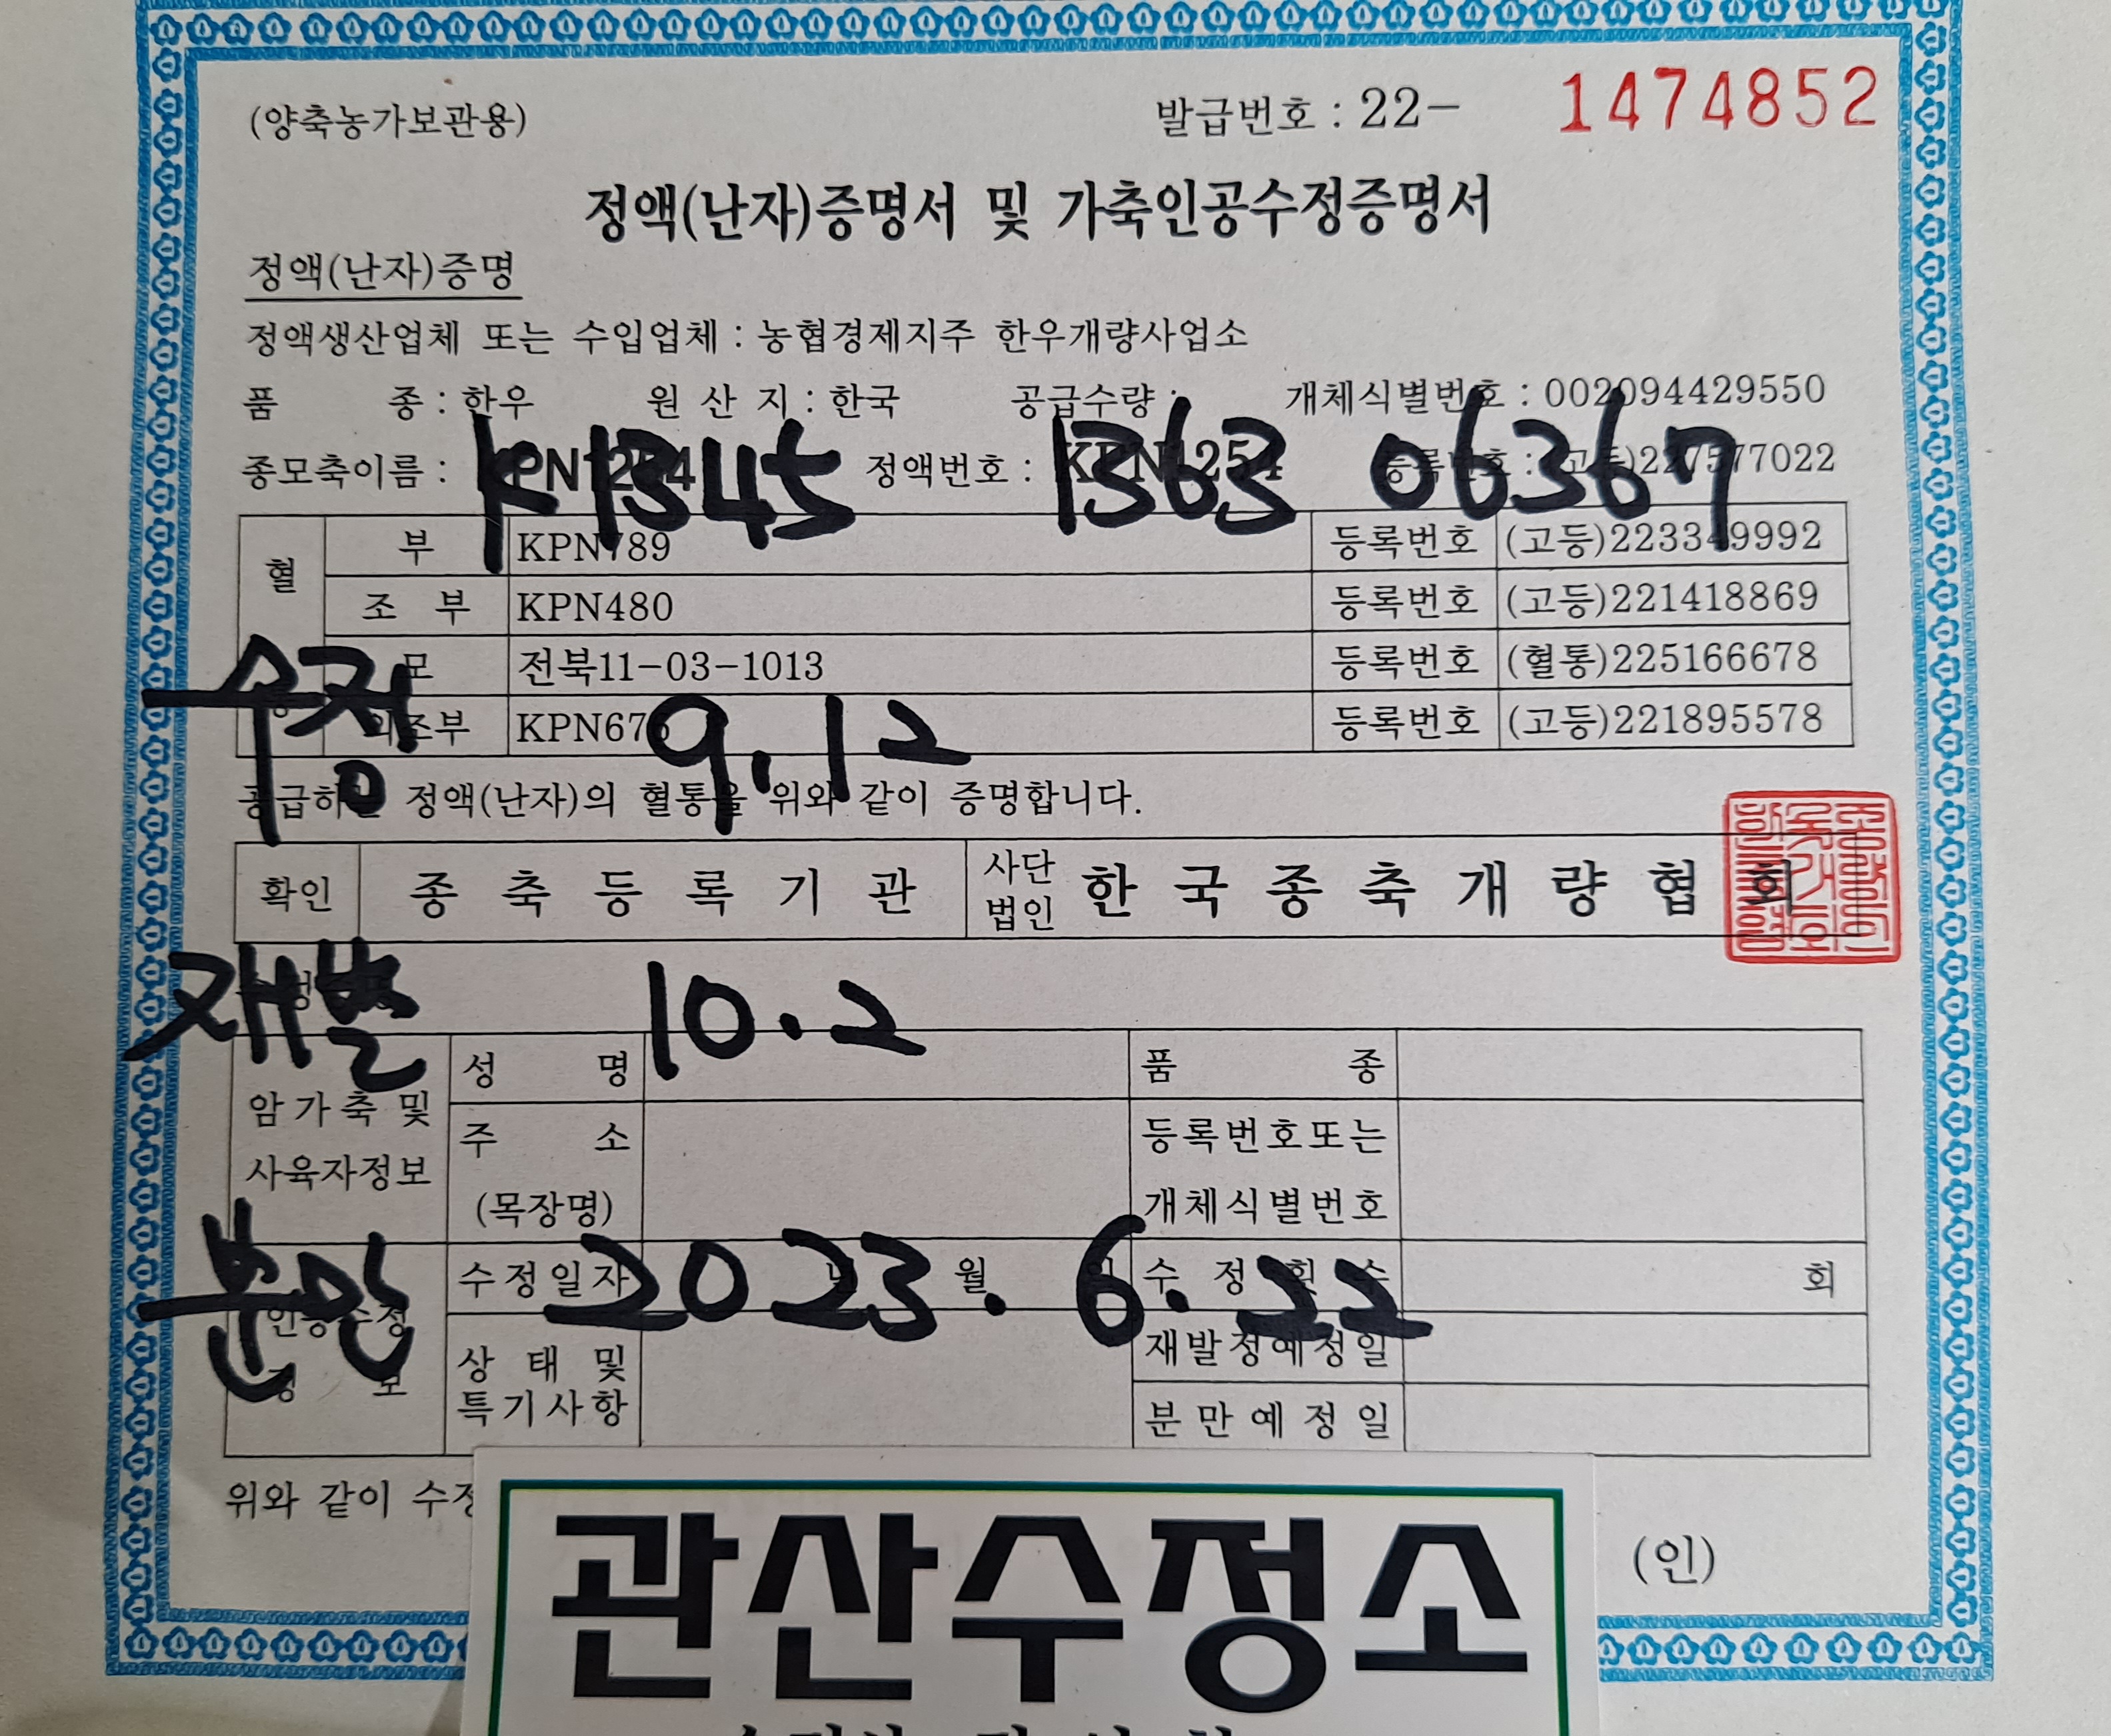 (양축농가보관용) 발급번호 : 22- 1474852
정액(난자)증명서 및 가축인공수정증명서
정액(난자)증명
정액생산업체 또는 수입업체 : 농협경제지주 한우개량사업소
품 종 : 한우 원 산 지 : 한국 공급수량 : 개체식별번호 : 002094429550
종모축이름 : KPN1254 정액번호 : KPN1254 등록번호 : (고등)227577022
K1345 1363 06367
혈 부 KPN789 등록번호 (고등)223349992
조 부 KPN480 등록번호 (고등)221418869
모 전북11-03-1013 등록번호 (혈통)225166678
외조부 KPN676 등록번호 (고등)221895578
수정 9.12
공급하는 정액(난자)의 혈통을 위와 같이 증명합니다.
확인 종 축 등 록 기 관 사단법인 한 국 종 축 개 량 협 회
재발 10.2
암가축 및 사육자정보 성 명 품 종
주 소 (목장명) 등록번호또는 개체식별번호
분만 2023. 6. 22
인공수정 정 보 수정일자 년 월 일 수 정 횟 수 회
상 태 및 특기사항 재발정예정일
분 만 예 정 일
위와 같이 수정
(인)
관산수정소